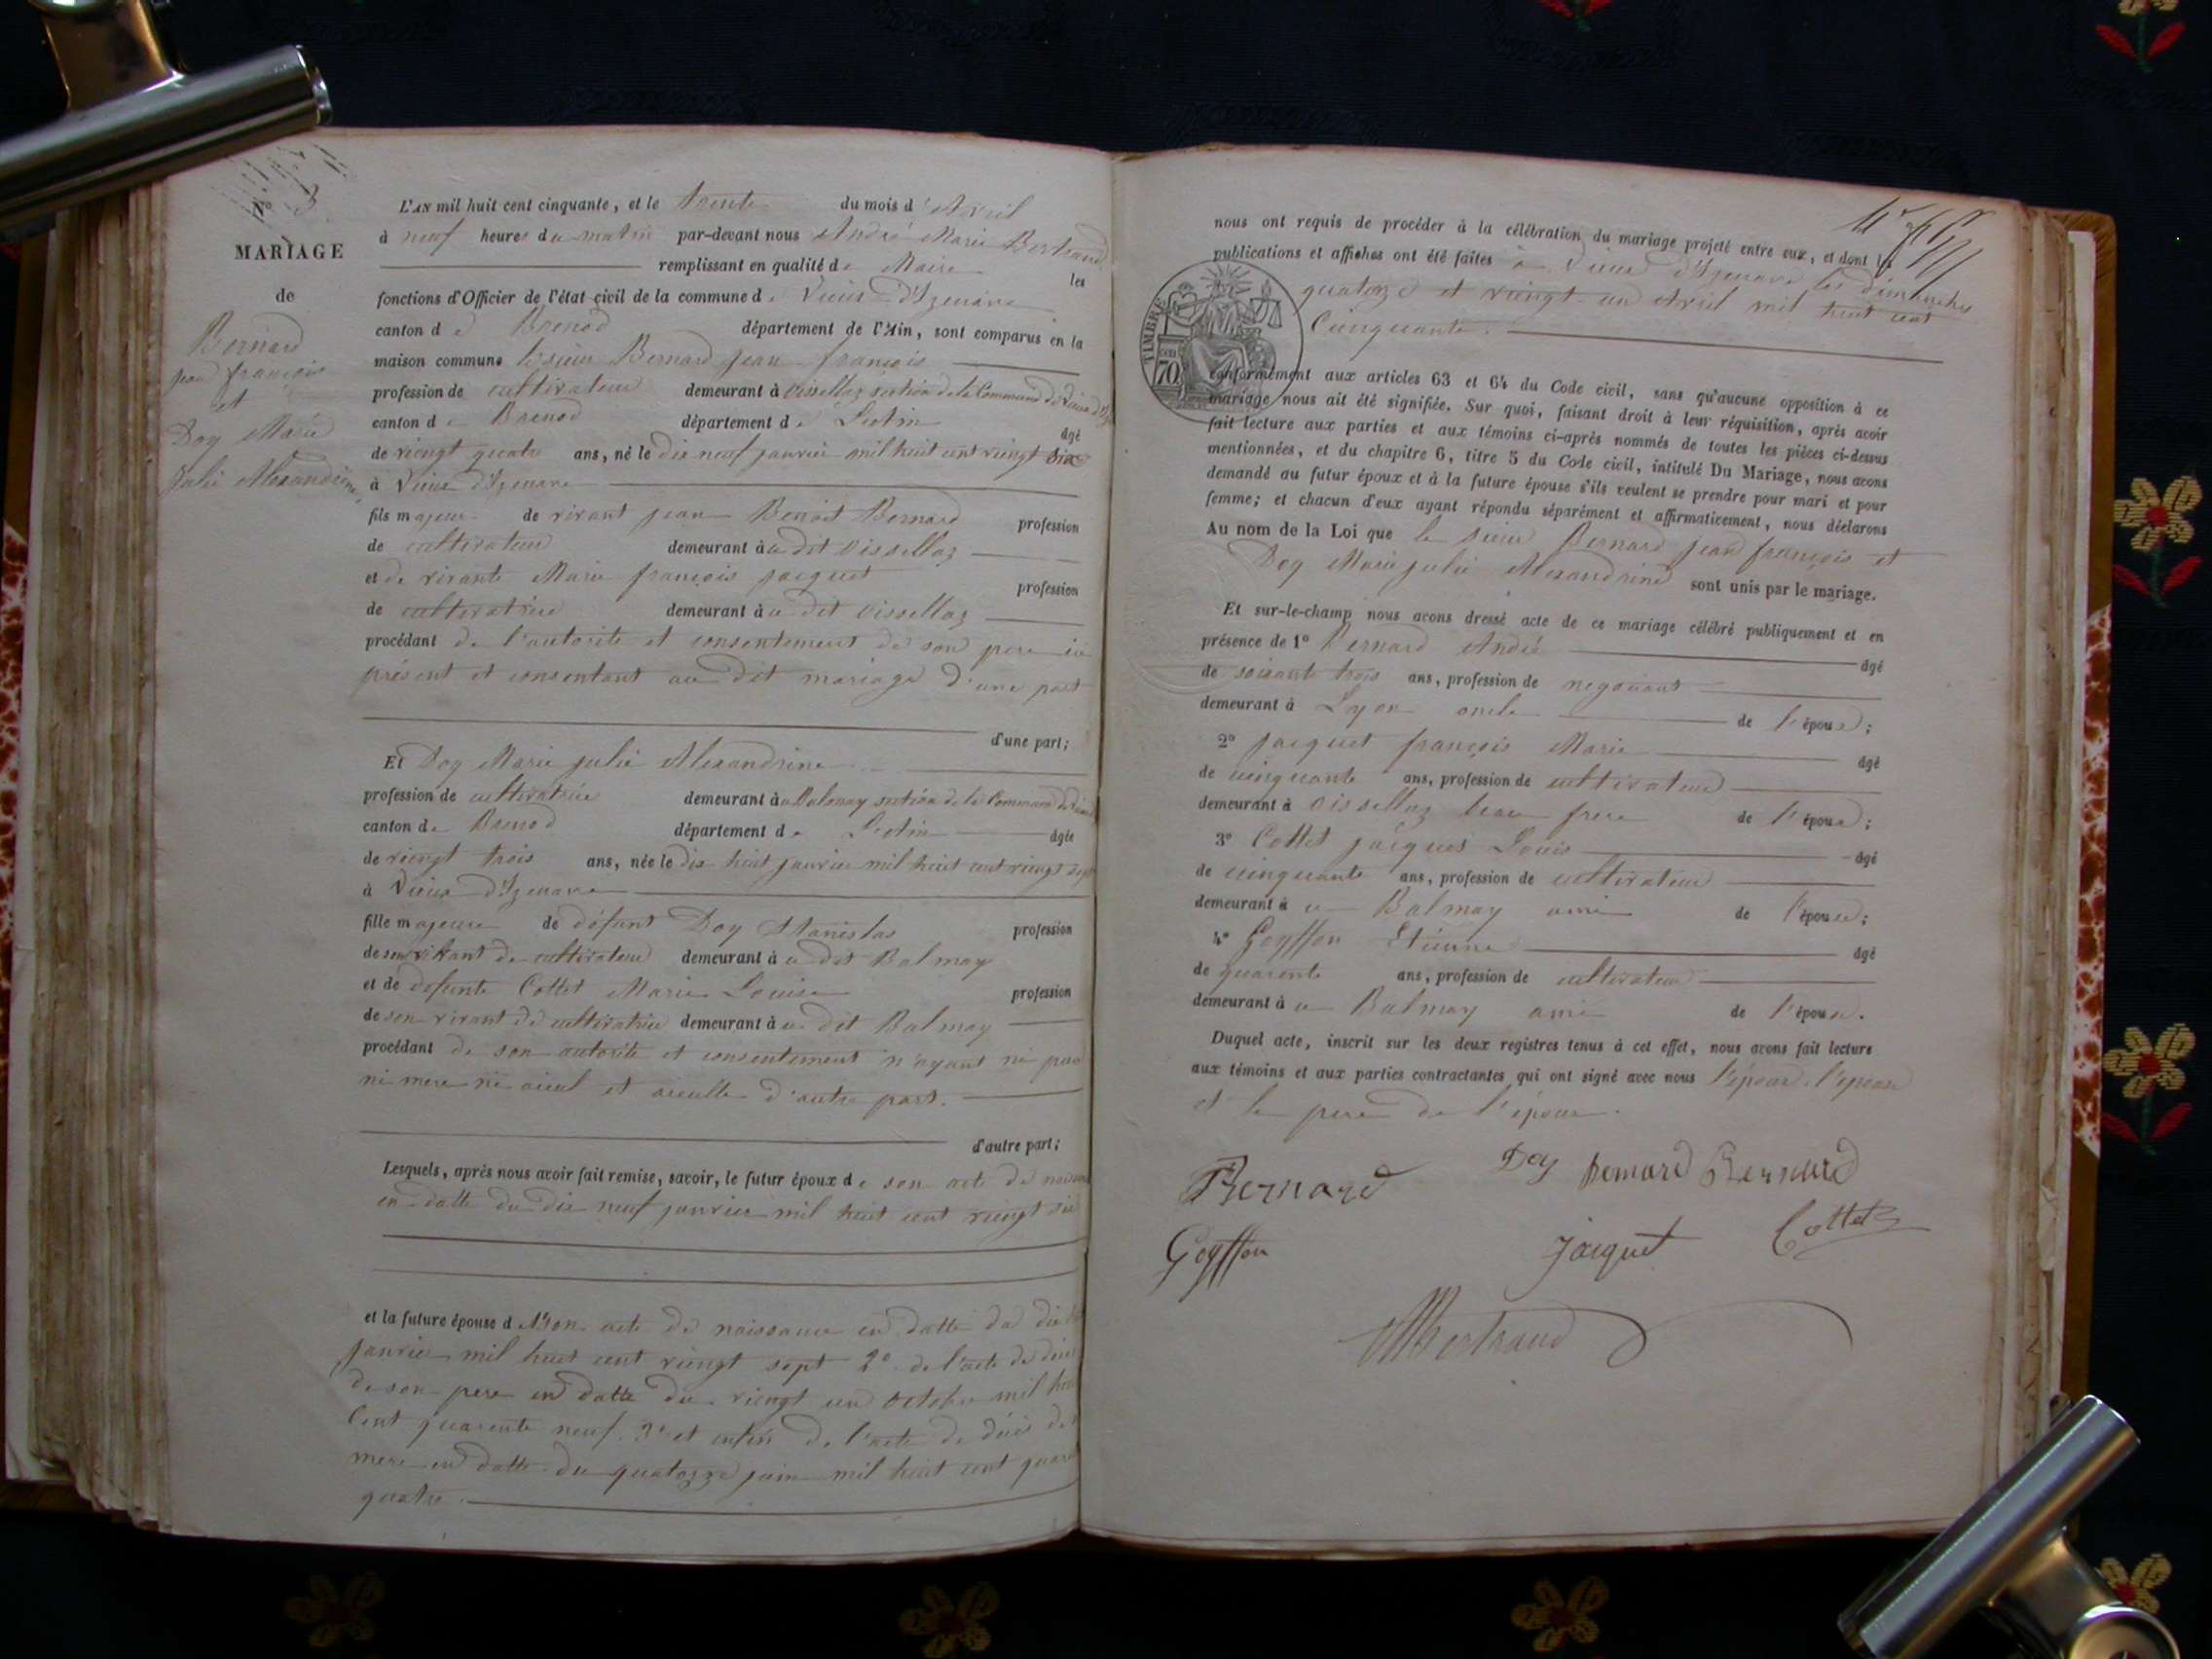 N° 3
MARIAGE
de
Bernard
jean françois
et
Doy Marie
julie Alexandrine
L'AN mil huit cent cinquante, et le trente du mois d'Avril
à neuf heures du matin par-devant nous André Marie Bertrand
remplissant en qualité de Maire les
fonctions d'Officier de l'état civil de la commune de Vieux d'Izenave
canton de Brenod département de l'Ain, sont comparus en la
maison commune le sieur Bernard jean françois
profession de cultivateur demeurant à Oissellaz section de la Commune de Vieux d'Iz
canton de Brenod département de L'Ain âgé
de vingt quatre ans, né le dix neuf janvier mil huit cent vingt six
à Vieux d'Izenave
fils majeur de vivant jean Benoit Bernard profession
de cultivateur demeurant à u dit Oissellaz
et de vivante Marie françois jacquet profession
de cultivatrice demeurant à u dit Oissellaz
procédant de l'autorité et consentement de son pere ici
présent et consentant au dit mariage d'une part
d'une part;
Et Doy Marie julie Alexandrine
profession de cultivatrice demeurant à u Balmay section de la Commune de Vieux
canton de Brenod département de L'Ain âgée
de vingt trois ans, née le dix huit janvier mil huit cent vingt sept
à Vieux d'Izenave
fille majeure de défunt Doy Stanislas profession
de son vivant de cultivateur demeurant à u dit Balmay
et de défunte Cottet Marie Louise profession
de son vivant de cultivatrice demeurant à u dit Balmay
procédant de son autorité et consentement n'ayant ni pere
ni mere ni aieul et aieulle d'autre part.
d'autre part;
Lesquels, après nous avoir fait remise, savoir, le futur époux de son acte de naissance
en datte du dix neuf janvier mil huit cent vingt six
et la future épouse de 1° son acte de naissance en datte du dix
janvier mil huit cent vingt sept 2° de l'acte de déces
de son pere en datte du vingt un octobre mil huit
Cent quarente neuf. 3° et enfin de l'acte de décés de
mere en datte du quatorze juin mil huit cent quare
quatre.
nous ont requis de procéder à la célébration du mariage projeté entre eux, et dont les
publications et affiches ont été faites à Vieux d'Izenave les dimanches
quatorze et vingt un Avril mil huit cent
Cinquante.
TIMBRE
70
conformément aux articles 63 et 64 du Code civil, sans qu'aucune opposition à ce
mariage nous ait été signifiée. Sur quoi, faisant droit à leur réquisition, après avoir
fait lecture aux parties et aux témoins ci-après nommés de toutes les pièces ci-dessus
mentionnées, et du chapitre 6, titre 5 du Code civil, intitulé Du Mariage, nous avons
demandé au futur époux et à la future épouse s'ils veulent se prendre pour mari et pour
femme; et chacun d'eux ayant répondu séparément et affirmativement, nous déclarons
Au nom de la Loi que le sieur Bernard jean françois et
Doy Marie julie Alexandrine sont unis par le mariage.
Et sur-le-champ nous avons dressé acte de ce mariage célébré publiquement et en
présence de 1° Bernard André âgé
de soixante trois ans, profession de negociant
demeurant à Lyon oncle de l'époux;
2° jacquet françois Marie âgé
de cinquante ans, profession de cultivateur
demeurant à Oissellaz beau frere de l'époux;
3° Cottet jacques Louis âgé
de cinquante ans, profession de cultivateur
demeurant à u Balmay ami de l'épouse;
4° Goyffon Etienne âgé
de quarente ans, profession de cultivateur
demeurant à u Balmay ami de l'épouse.
Duquel acte, inscrit sur les deux registres tenus à cet effet, nous avons fait lecture
aux témoins et aux parties contractantes qui ont signé avec nous l'époux, l'épouse
et le pere de l'époux.
Bernard Doy Bernard Bernard
Goyffon jacquet Cottet
AMBertrand